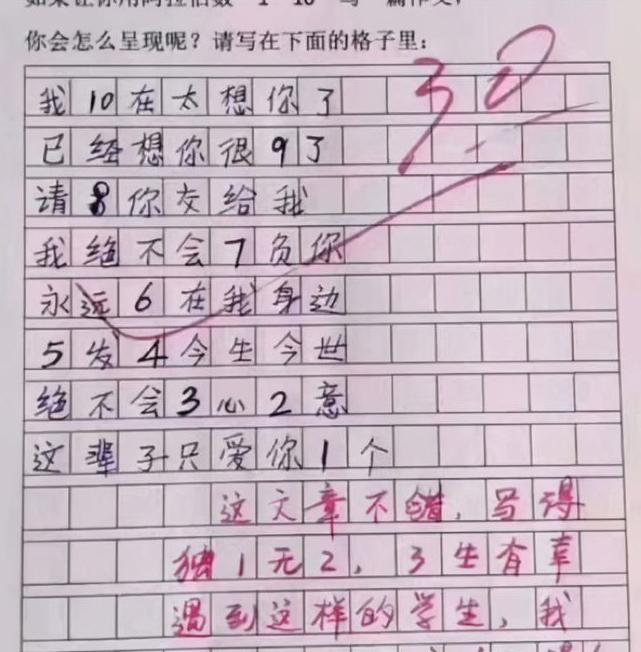 你会怎么呈现呢？请写在下面的格子里：
30
我10在太想你了
已经想你很9了
请8你交给我
我绝不会7负你
永远6在我身边
5发4今生今世
绝不会3心2意
这辈子只爱你1个
这文章不错，写得
独1无2，3生有幸
遇到这样的学生，我